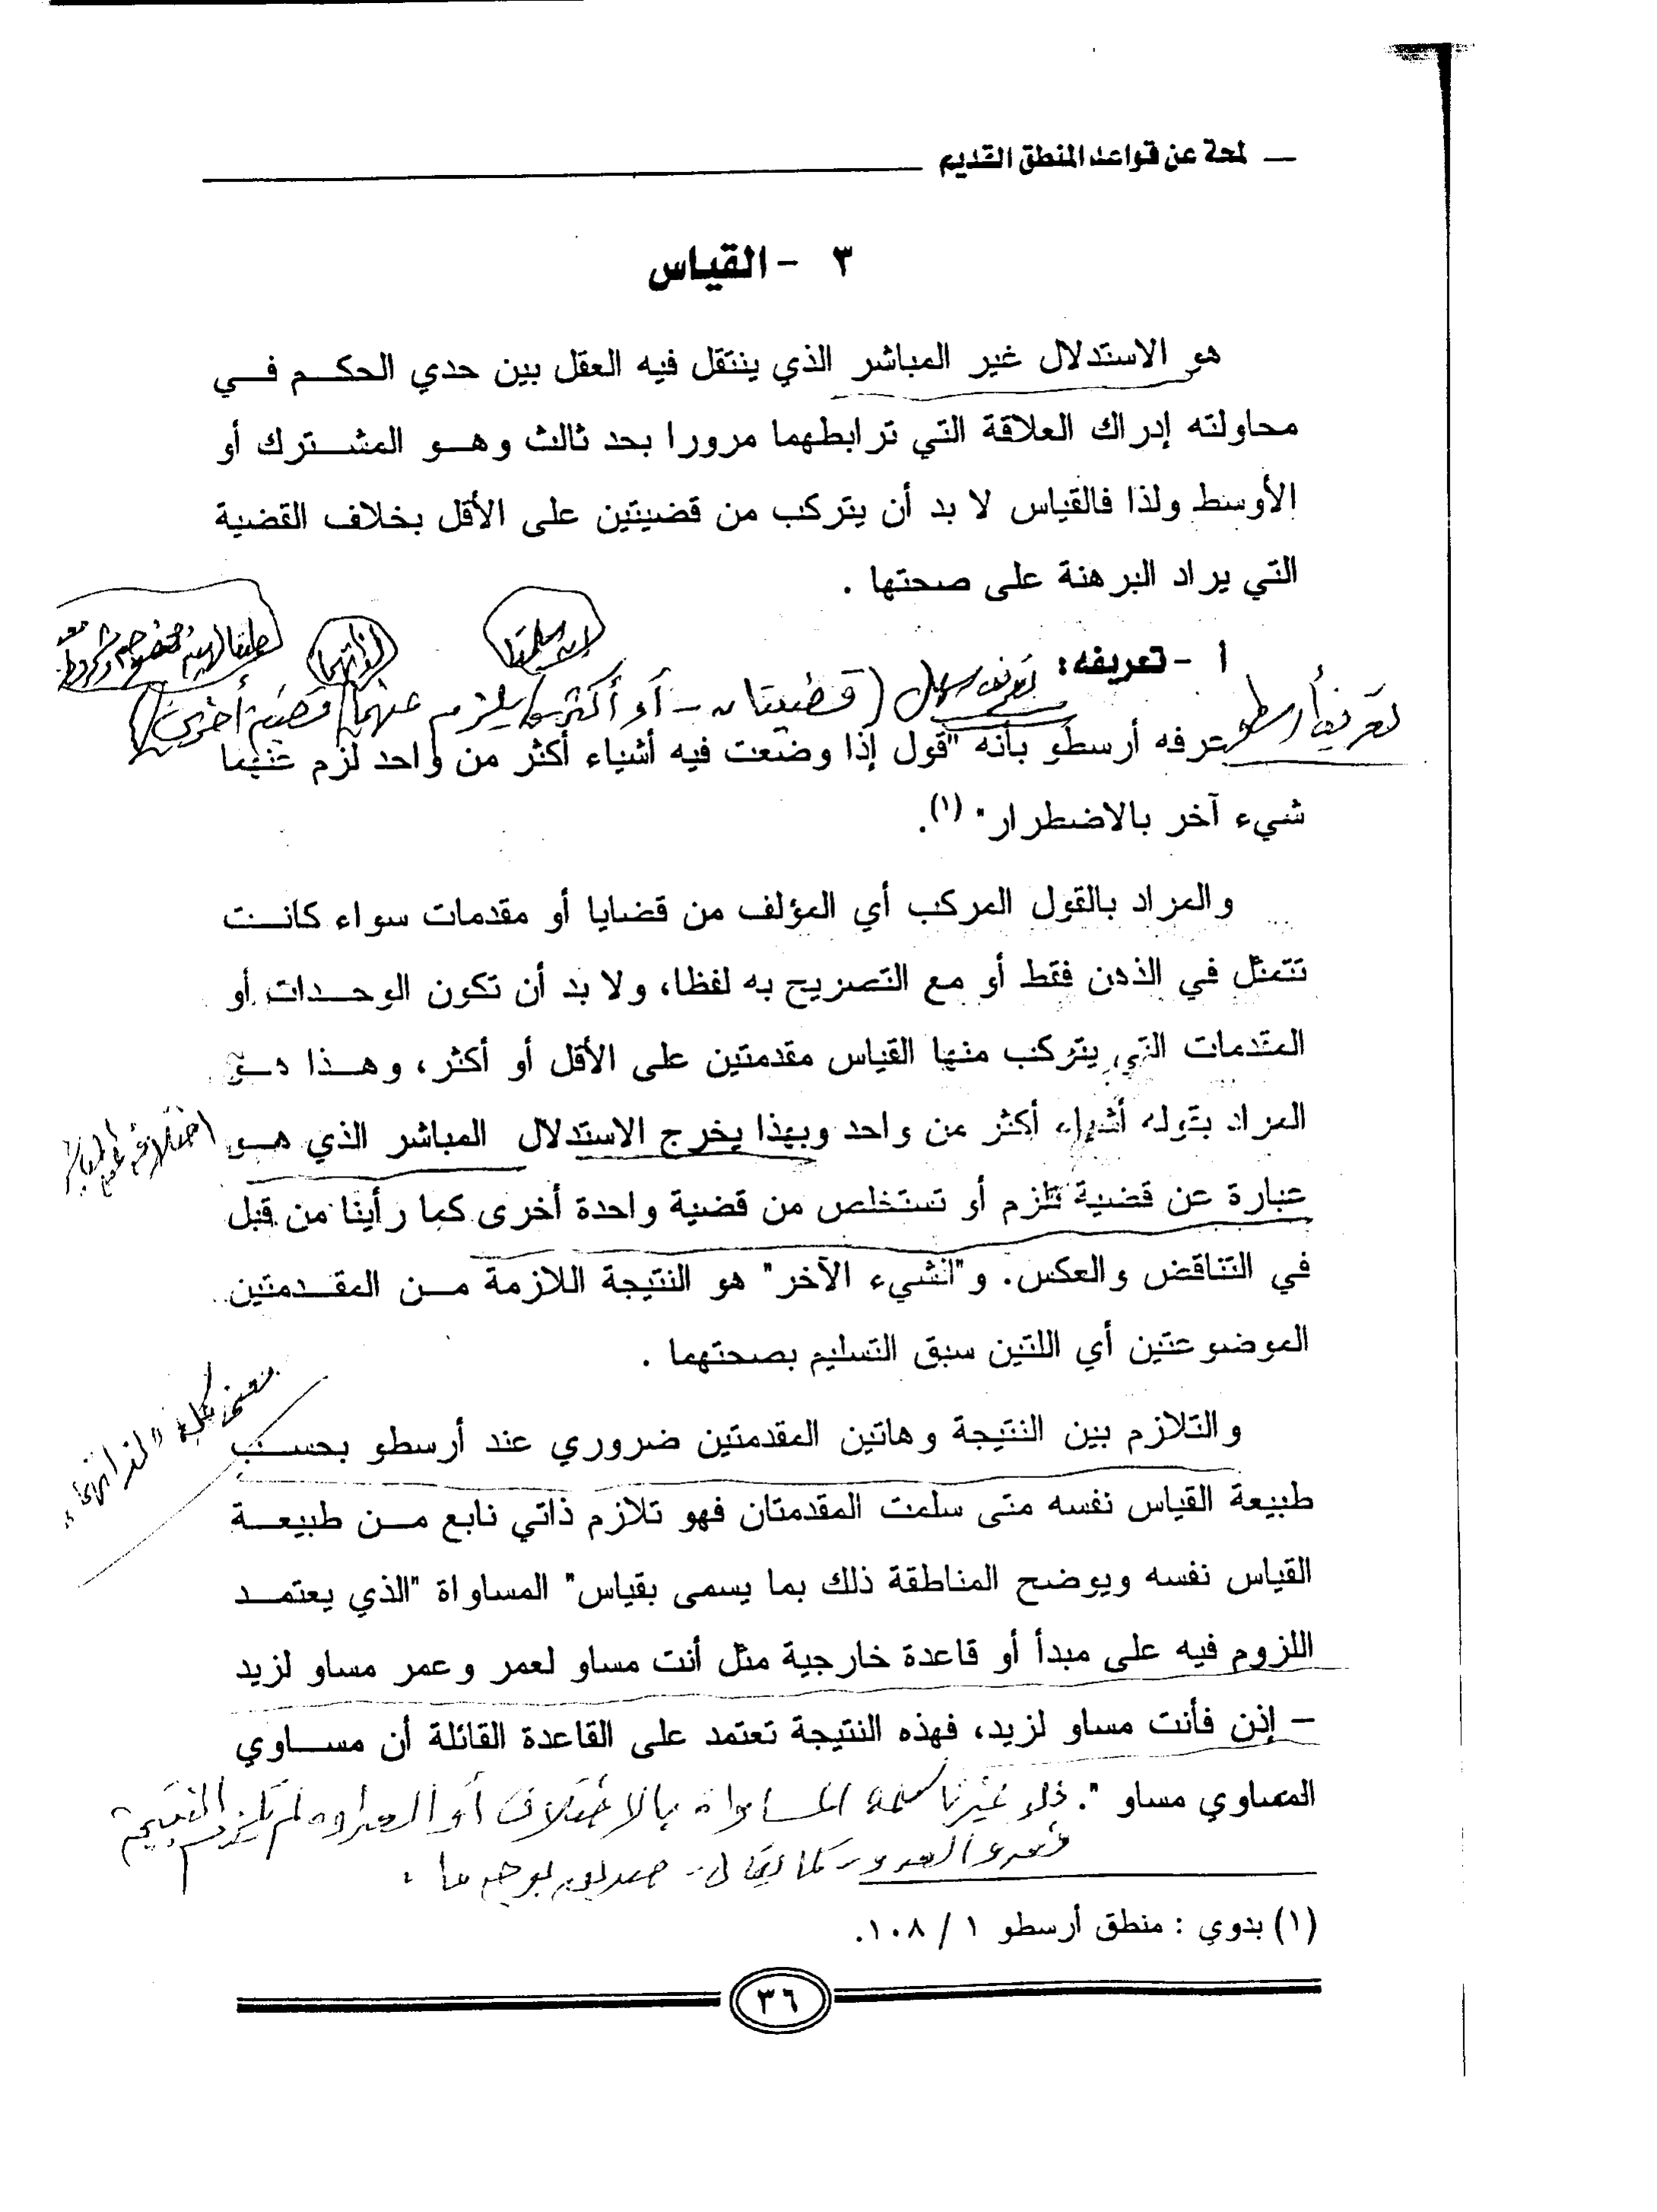 ـ لمحة عن قواعد المنطق القديم
٣ - القياس
هو الاستدلال غير المباشر الذي ينتقل فيه العقل بين حدي الحكم في
محاولته إدراك العلاقة التي ترابطهما مرورا بحد ثالث وهو المشترك أو
الأوسط ولذا فالقياس لا بد أن يتركب من قضيتين على الأقل بخلاف القضية
التي يراد البرهنة على صحتها .
لذاتهما
أ - تعريفه:
تعريف أرسطو
تعريف سهل (قضيتان - أو أكثر يلزم عنهما قضية أخرى)
عرفه أرسطو بأنه "قول إذا وضعت فيه أشياء أكثر من واحد لزم عنهما
شيء آخر بالاضطرار" (١).
والمراد بالقول المركب أي المؤلف من قضايا أو مقدمات سواء كانت
تتمثل في الذهن فقط أو مع التصريح به لفظا، ولا بد أن تكون الوحدات أو
المقدمات التي يتركب منها القياس مقدمتين على الأقل أو أكثر، وهذا هو
المراد بقوله أشياء أكثر من واحد وبهذا يخرج الاستدلال المباشر الذي هو
عبارة عن قضية تلزم أو تستخلص من قضية واحدة أخرى كما رأينا من قبل
في التناقض والعكس. و"الشيء الآخر" هو النتيجة اللازمة من المقدمتين
الموضوعتين أي اللتين سبق التسليم بصحتهما .
والتلازم بين النتيجة وهاتين المقدمتين ضروري عند أرسطو بحسب
طبيعة القياس نفسه متى سلمت المقدمتان فهو تلازم ذاتي نابع من طبيعة
القياس نفسه ويوضح المناطقة ذلك بما يسمى بقياس" المساواة "الذي يعتمد
اللزوم فيه على مبدأ أو قاعدة خارجية مثل أنت مساو لعمر وعمر مساو لزيد
– إذن فأنت مساو لزيد، فهذه النتيجة تعتمد على القاعدة القائلة أن مساوي
المساوي مساو ".
غيرنا كلمة المساواة بالاختلاف أو العداوة لم تلزم النتيجة
(١) بدوي : منطق أرسطو ١ / ١٠٨.
٣٦